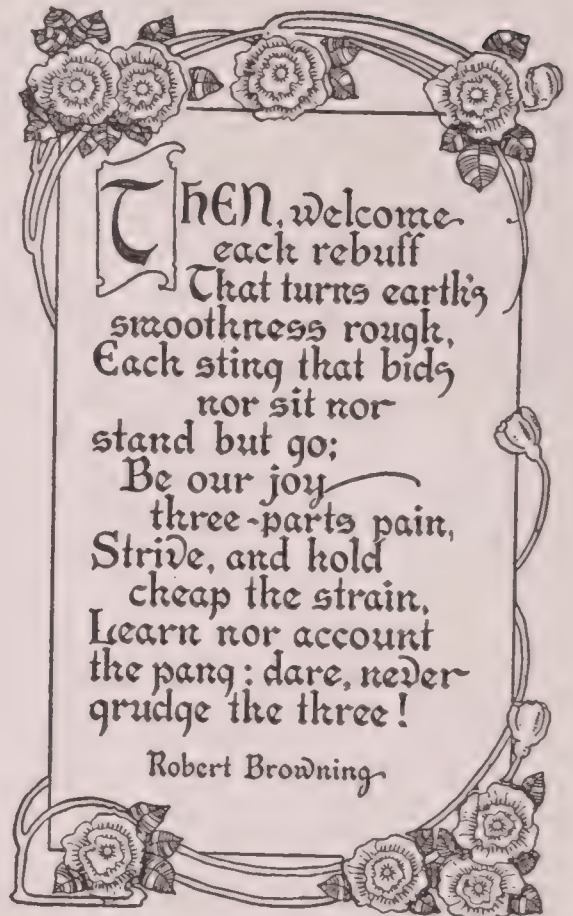 THEN, welcome
each rebuff
That turns earth's
smoothness rough,
Each sting that bids
nor sit nor
stand but go;
Be our joy
three-parts pain,
Strive, and hold
cheap the strain,
Learn nor account
the pang: dare, never
grudge the three!
Robert Browning